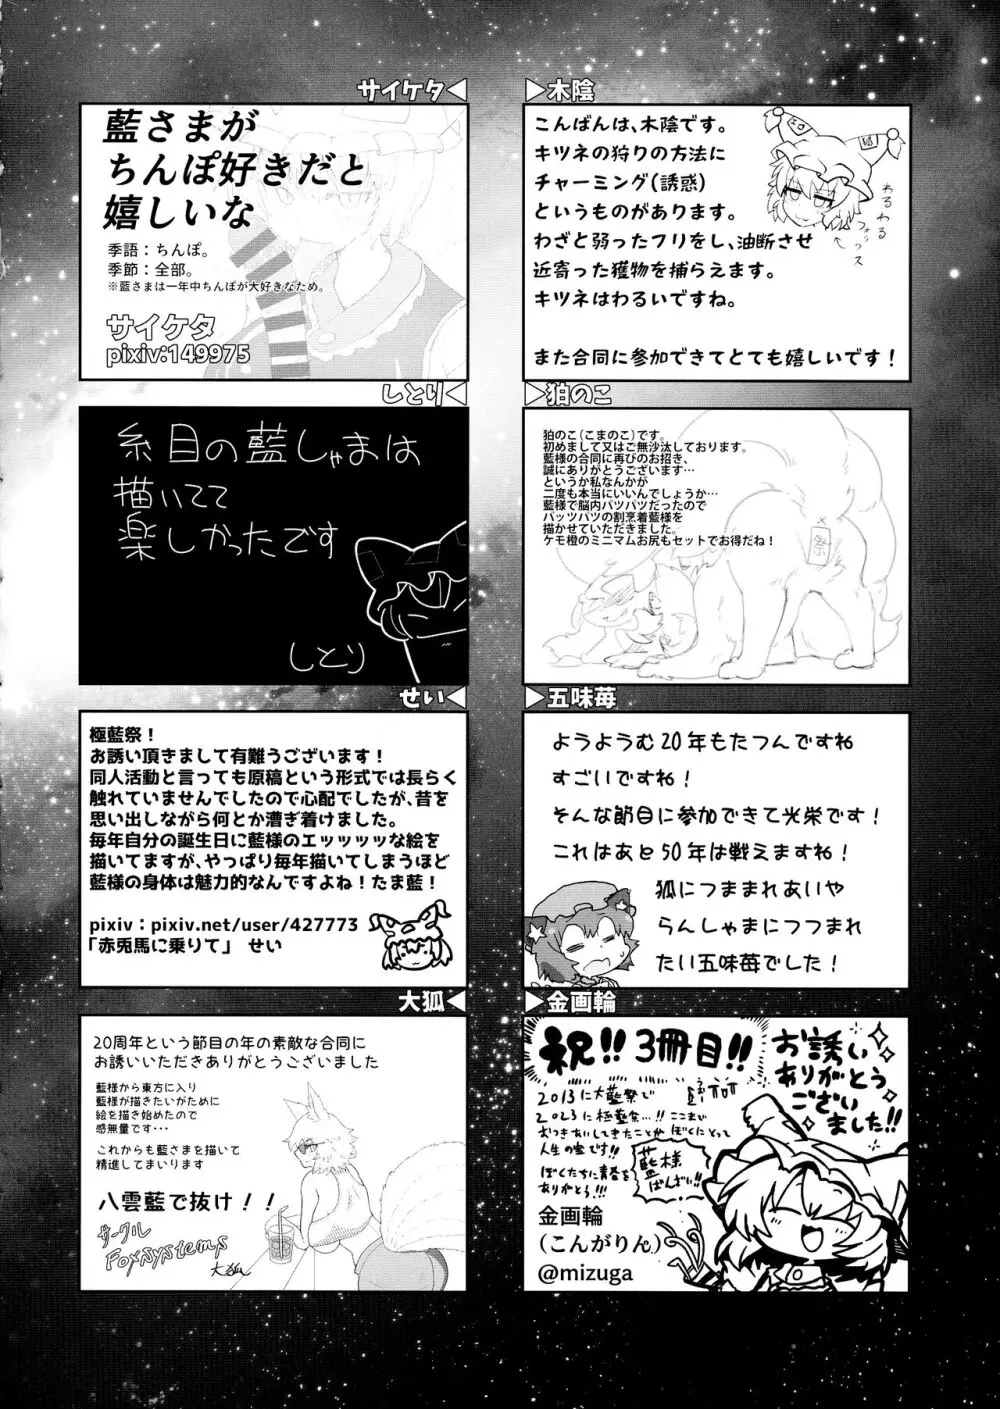 サイケタ
藍さまが
ちんぽ好きだと
嬉しいな
季語：ちんぽ。
季節：全部。
※藍さまは一年中ちんぽが大好きなため。
サイケタ
pixiv:149975
木陰
こんばんは、木陰です。
キツネの狩りの方法に
チャーミング(誘惑)
というものがあります。
わざと弱ったフリをし、油断させ
近寄った獲物を捕らえます。
キツネはわるいですね。
また合同に参加できてとても嬉しいです！
わるわる
フォックス
しとり
糸目の藍しゃまは
描いてて
楽しかったです
しとり
狛のこ
狛のこ(こまのこ)です。
初めまして又はご無沙汰しております。
藍様の合同に再びのお招き、
誠にありがとうございます…
というか私なんかが
二度も本当にいいんでしょうか…
藍様で脳内パツパツだったので
パッツパツの割烹着藍様を
描かせていただきました。
ケモ橙のミニマムお尻もセットでお得だね！
祭
せい
極藍祭！
お誘い頂きまして有難うございます！
同人活動と言っても原稿という形式では長らく
触れていませんでしたので心配でしたが、昔を
思い出しながら何とか漕ぎ着けました。
毎年自分の誕生日に藍様のエッッッッな絵を
描いてますが、やっぱり毎年描いてしまうほど
藍様の身体は魅力的なんですよね！たま藍！
pixiv：pixiv.net/user/427773
「赤兎馬に乗りて」 せい
五味苺
ようようむ20年もたつんですね
すごいですね！
そんな節目に参加できて光栄です！
これはあと50年は戦えますね！
狐につままれあいや
らんしゃまにつつまれ
たい五味苺でした！
大狐
20周年という節目の年の素敵な合同に
お誘いいただきありがとうございました
藍様から東方に入り
藍様が描きたいがために
絵を描き始めたので
感無量です…
これからも藍さまを描いて
精進してまいります
八雲藍で抜け！！
サークル
Foxsystems
大狐
金画輪
祝!!3冊目!!
お誘い
ありがとう
ござい
ました!!
2013に大藍祭で
2023に極藍祭…!!ここまで
おつきあいしてきたことが ぼくにとって
人生の宝です!!
ぼくたちに青春を
ありがとう!!!
藍様
ばんざい!!
金画輪
(こんがりん)
@mizuga